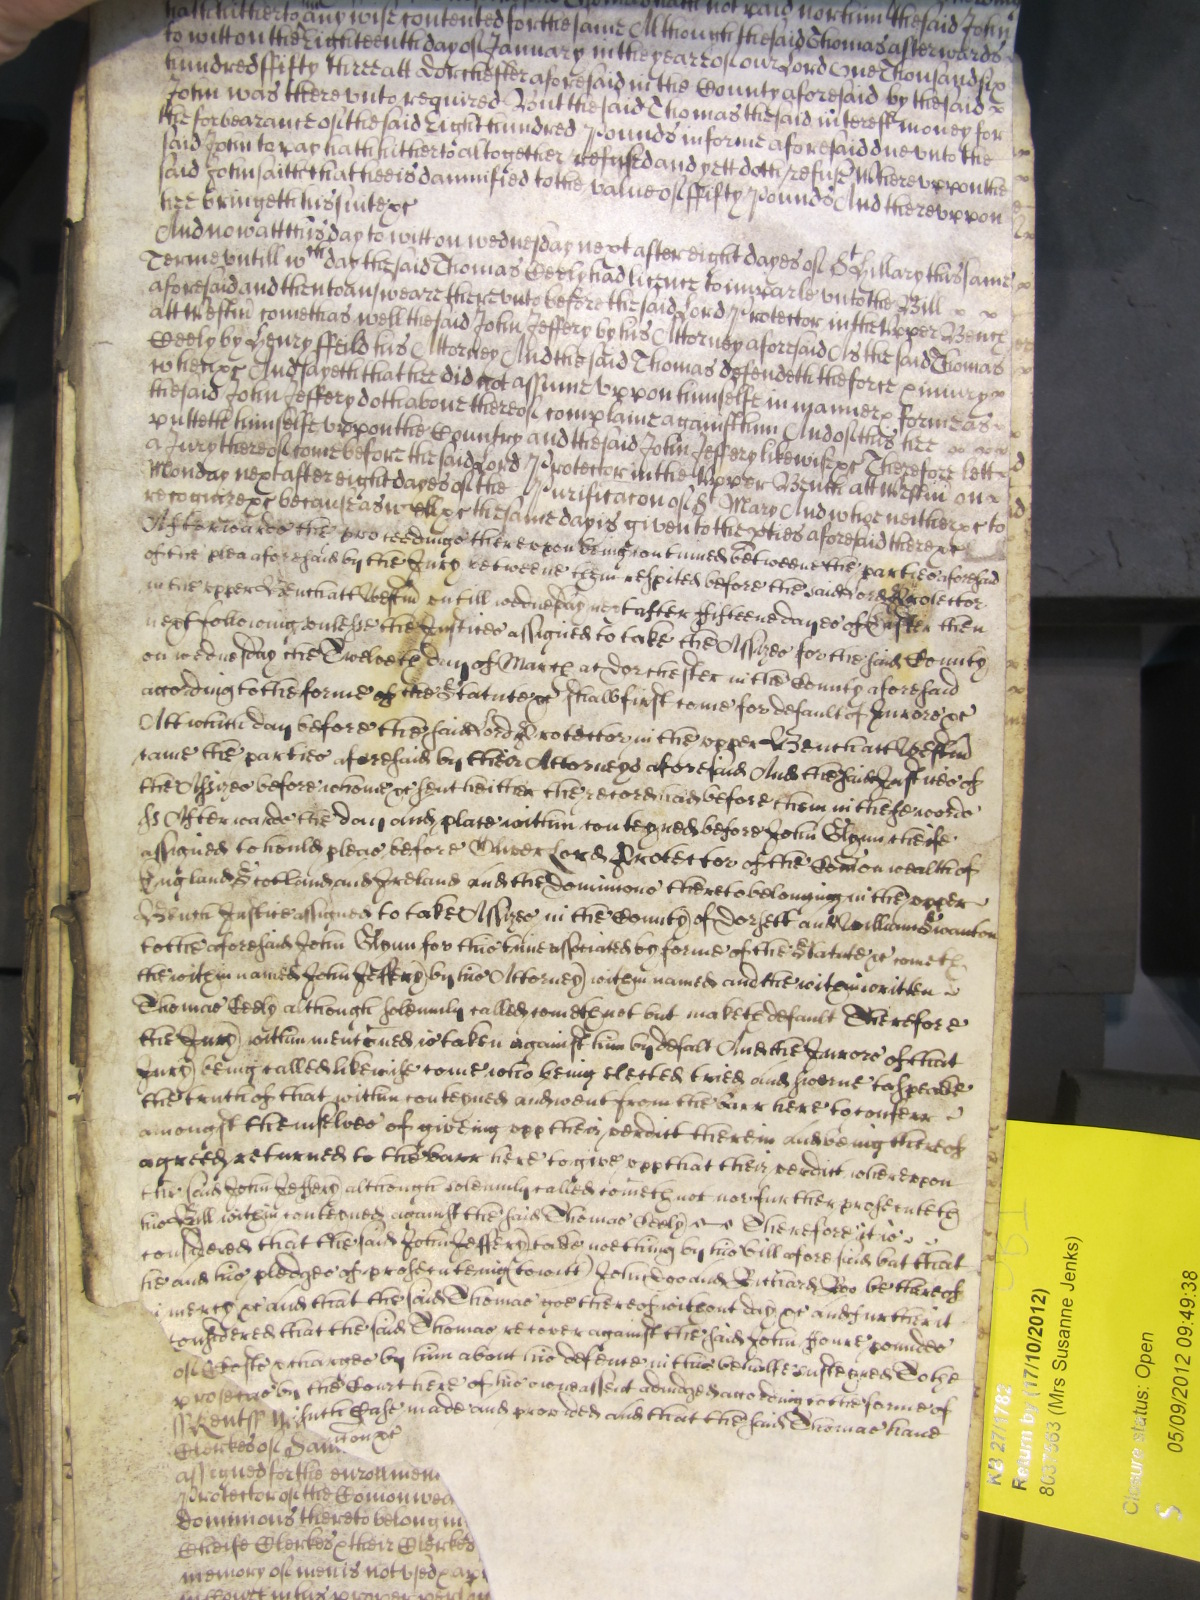 hath hitherto any wise contented for the same Although the said Thomas afterwards
to witt on the Eighteenth day of January in the yeare of our Lord One Thousand six
hundred fifty three att Dorchester aforesaid in the County aforesaid by the said
John was there unto required But the said Thomas the said interest money for
the forbearance of the said Eight hundred Pounds in forme aforesaid due unto the
said John to pay hath hitherto altogether refused and yett doth refuse Whereuppon the
said John saith that hee is damnified to the value of ffifty Pounds And thereuppon
hee bringeth his suite &c
And now att this day to witt on wednesday next after eight dayes of St Hillary this same
Terme untill wch day the said Thomas Ceely had licence to imparle unto the Bill
aforesaid and then to answeare thereunto before the said Lord Protector in the Upper Bench
att Westm cometh as well the said John Jeffery by his Attorney aforesaid As the said Thomas
Ceely by Henry ffeild his Attorney And the said Thomas defendeth the force & iniury
when &c And sayeth that hee did not assume uppon himselfe in manner & forme as
the said John Jeffery doth above thereof complaine against him And of this hee
putteth himselfe uppon the Country and the said John Jeffery likewise &c Therefore lett
a Jury thereof come before the said Lord Protector in the Upper Bench att Westm on
Monday next after eight dayes of the Purificacon of St Mary And who neither &c to
recognize &c because as well &c the same day is given to the pties aforesaid there &c
Afterwards the proceedings thereupon being continued betweene the parties aforesaid
of the plea aforesaid by the Jury betweene them respited before the said Lord Protector
in the upper Bench att Westm untill wednesday next after fifteene dayes of Easter then
next following unlesse the Justices assigned to take the Assizes for the said County
on wednesday the Twelveth day of March at Dorchester in the County aforesaid
according to the forme of the Statute &c shall first come for default of Jurors &c
Att which day before the said Lord Protector in the upper Bench att Westm
came the parties aforesaid by their Attorneys aforesaid And the said Justices of
the Assizes before whome &c sent heither the record had before them in these words
ss Afterwards the day and place within conteyned before John Glynn cheife
assigned to hould pleas before Oliver Lord Protector of the Comon wealth of
England Scotland and Ireland and the Dominions thereto belonging in the upper
Bench Justice assigned to take Assizes in the County of Dorsett and William Swanton
to the aforesaid John Glynn for this time associated by forme of the Statute &c cometh
the within named John Jeffery by his Attorney within named and the within written
Thomas Ceely although solemnly called cometh not but maketh default Therefore
the Jury within mentioned is taken against him by defalt And the Jurors of that
Jury being called likewise come who being elected tried and sworne to speake
the truth of that within conteyned and went from the barr here to conferr
amongst themselves of giveing upp their verdict therein and being thereof
agreed returned to the barr here to give upp that their verdict whereupon
the said John Jeffery although solemnly called cometh not nor further prosecuteth
his Bill within conteyned against the said Thomas Ceely Therefore it is
considered that the said John Jeffery take nothing by his bill aforesaid but that
he and his pledges of prosecuteing (to witt) John Doo and Richard Roo be thereof
in mercy &c and that the said Thomas goe thereof without day &c and further it
considered that the said Thomas recover against the said John foure poundes
Costs & charges by him about his defence in this behalfe susteyned
by the Court here of his owne assent adiudged according to the forme of
such Case made and provided and that the said Thomas have
Clerkes of
assigned for the enrollmen
Protector of the Comonwea
Dominions thereto belongin
Cheife Clerkes & their Clerkes
memory of men is not used